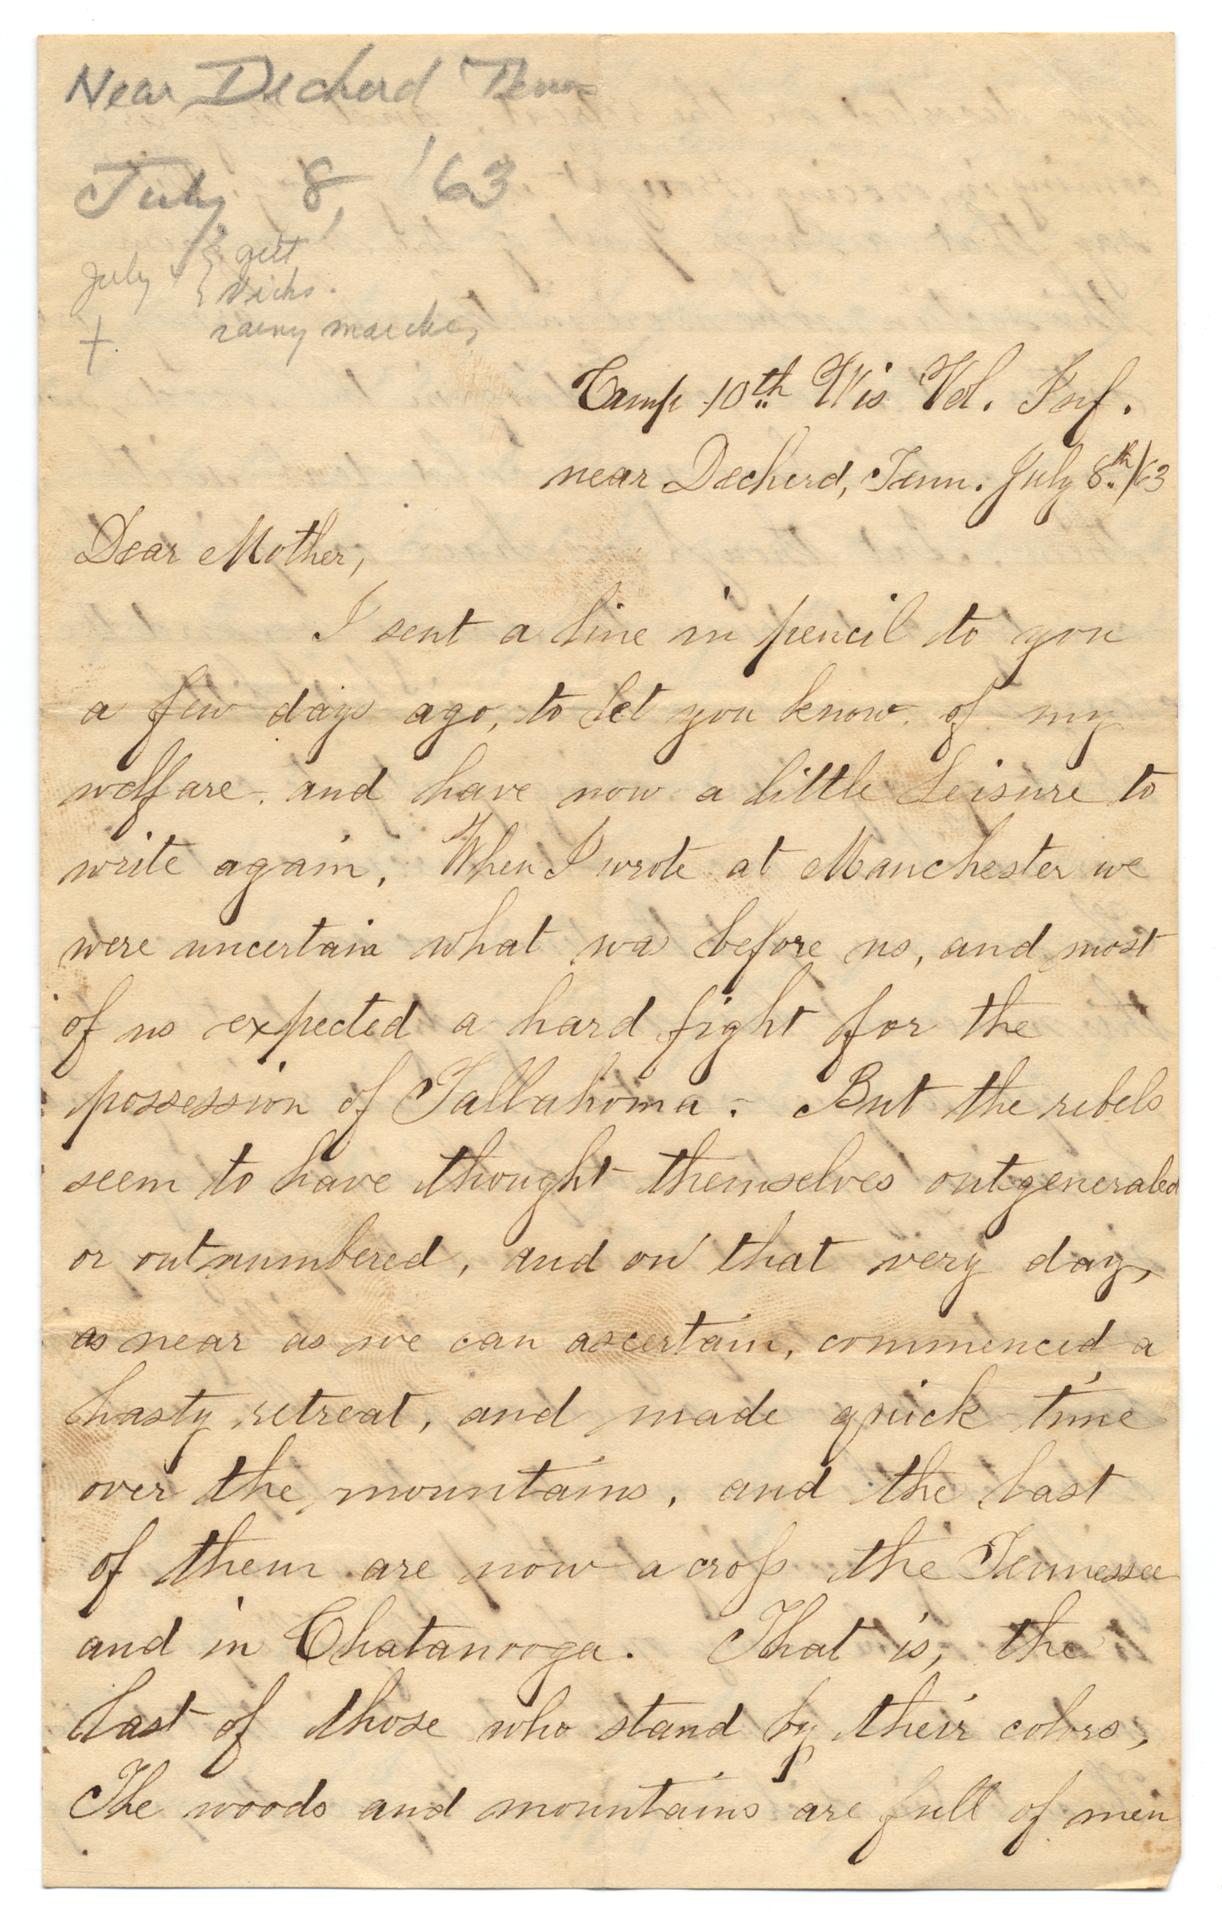 Near Decherd Tenn
July 8, '63
July { gett
{ Vicks.
+ rainy marches
Camp 10th Wis Vol. Inf.
near Decherd, Tenn. July 8th/63
Dear Mother,
I sent a line in pencil to you
a few days ago, to let you know of my
welfare, and have now a little leisure to
write again. When I wrote at Manchester we
were uncertain what was before us, and most
of us expected a hard fight for the
possession of Tallahoma. But the rebels
seem to have thought themselves outgeneraled
or outnumbered, and on that very day,
as near as we can ascertain, commenced a
hasty retreat, and made quick time
over the mountains, and the last
of them are now across the Tennessee
and in Chatanooga. That is, the
last of those who stand by their colors,
The woods and mountains are full of men